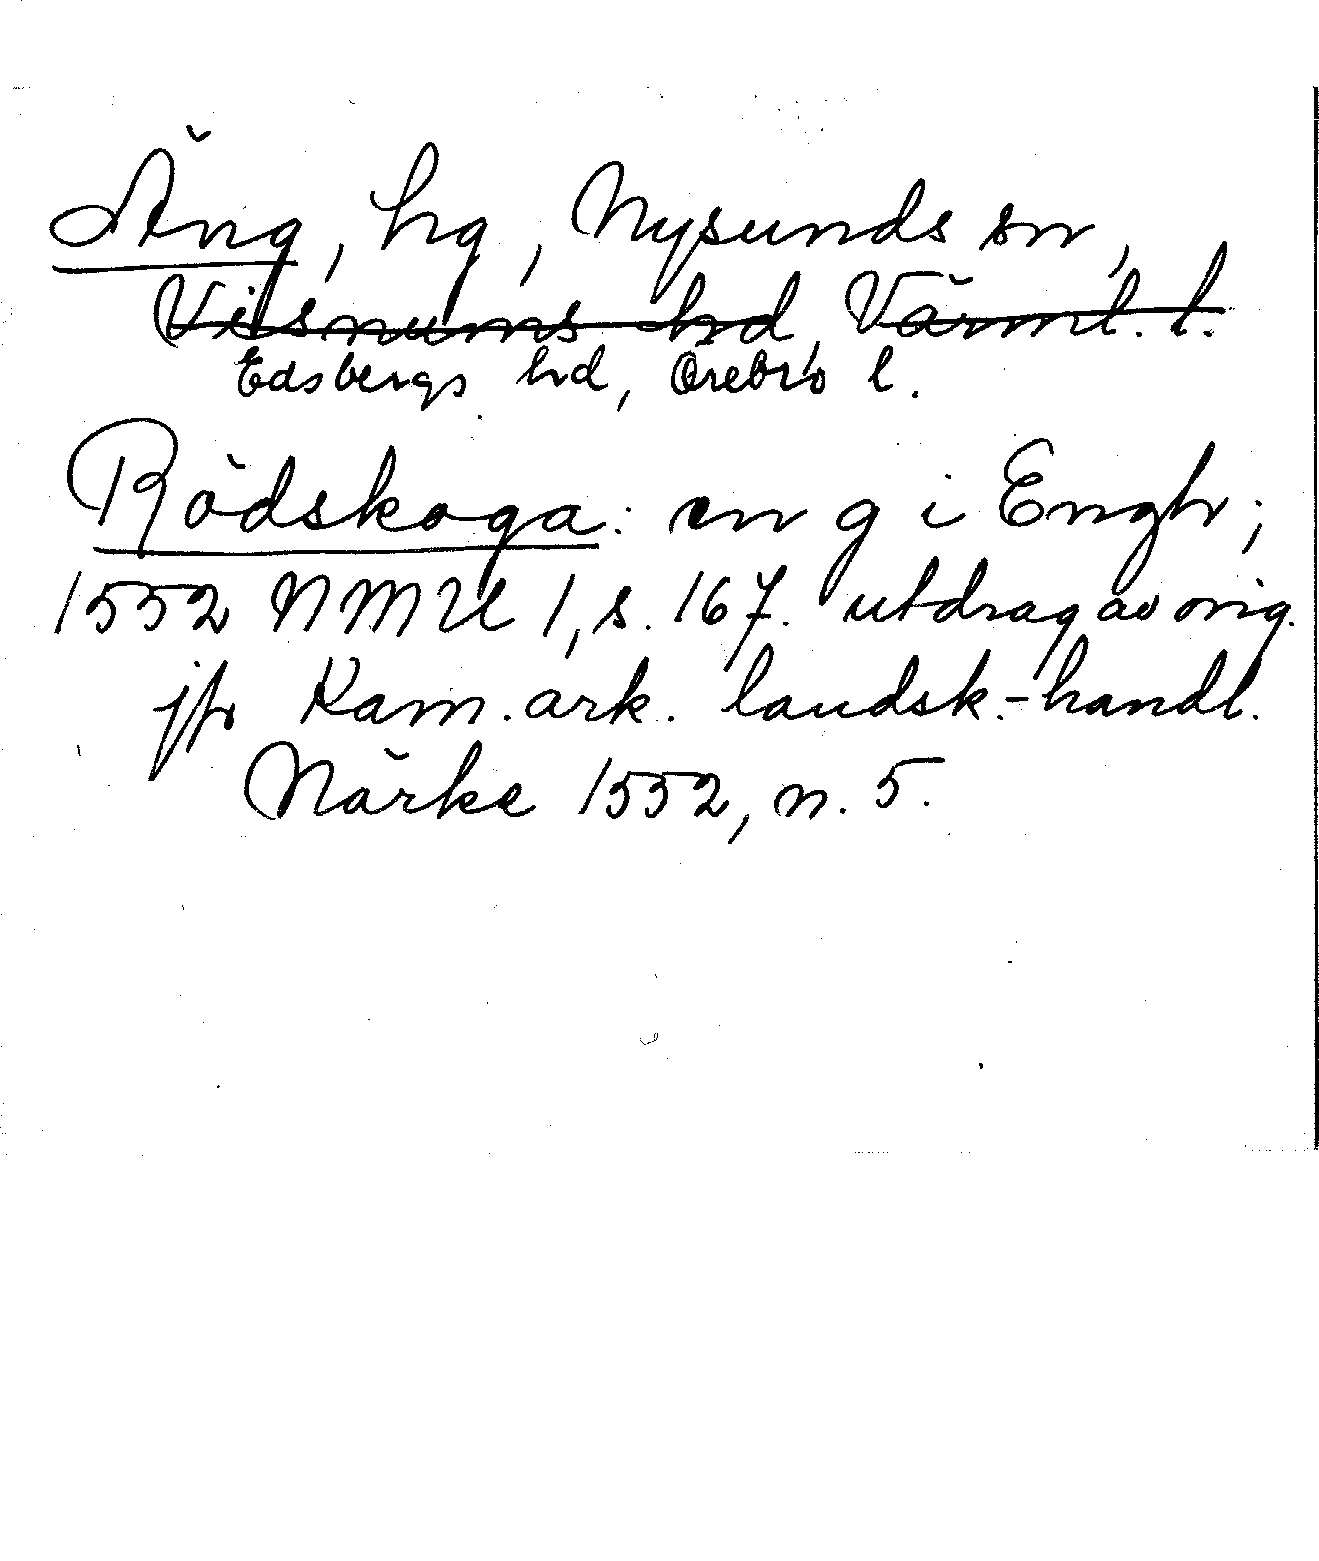 Äng, hg, Nysunds sn,
Visnums hd, Värml. l.
Edsbergs hd, Örebro l.
Rödskoga: en g i Engh;
1552 NMU 1, s. 167. utdrag av orig.
jfr Kam.ark. landsk.-handl.
Närke 1552, n. 5.